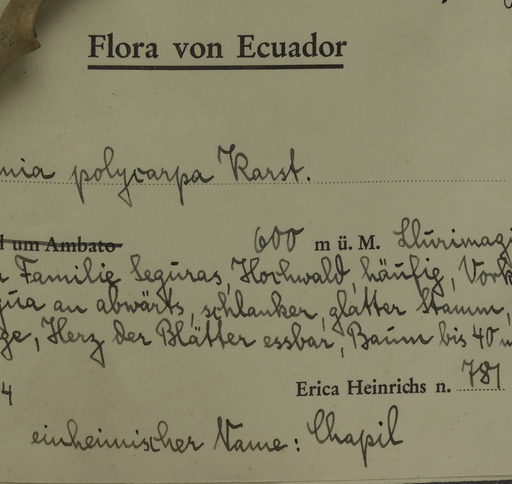 Flora von Ecuador
nia polycarpa Karst.
um Ambato 600 m ü. M. Llurimagi
Familie Seguras, Hochwald, häufig, Vork
gua an abwärts, schlanker, glatter Stamm,
ge, Herz der Blätter essbar, Baum bis 40 m
4 Erica Heinrichs n. 781
einheimischer Name: Chapil